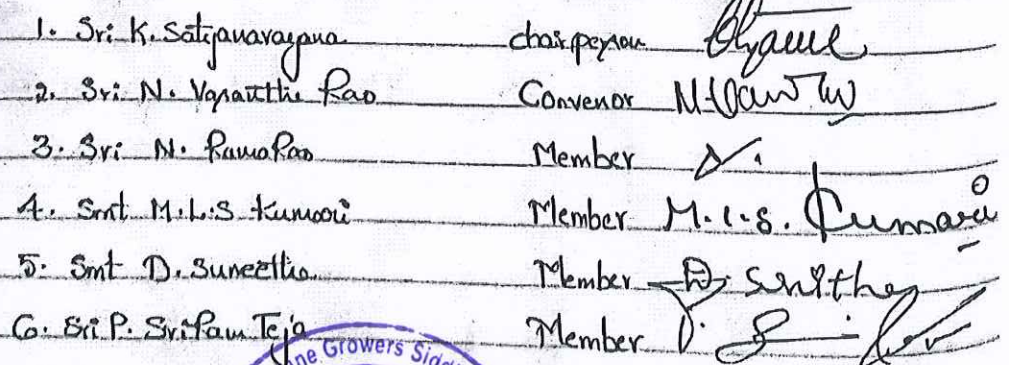 1. Sri K. Satyanarayana chairperson
2. Sri N. Vasantha Rao Convenor
3. Sri N. RamaRao Member
4. Smt M.L.S Kumari Member M.L.S. Kumari
5. Smt D. Suneetha Member D. Sunitha
6. Sri P. Sri Ram Teja Member P.
ne Growers Sidd